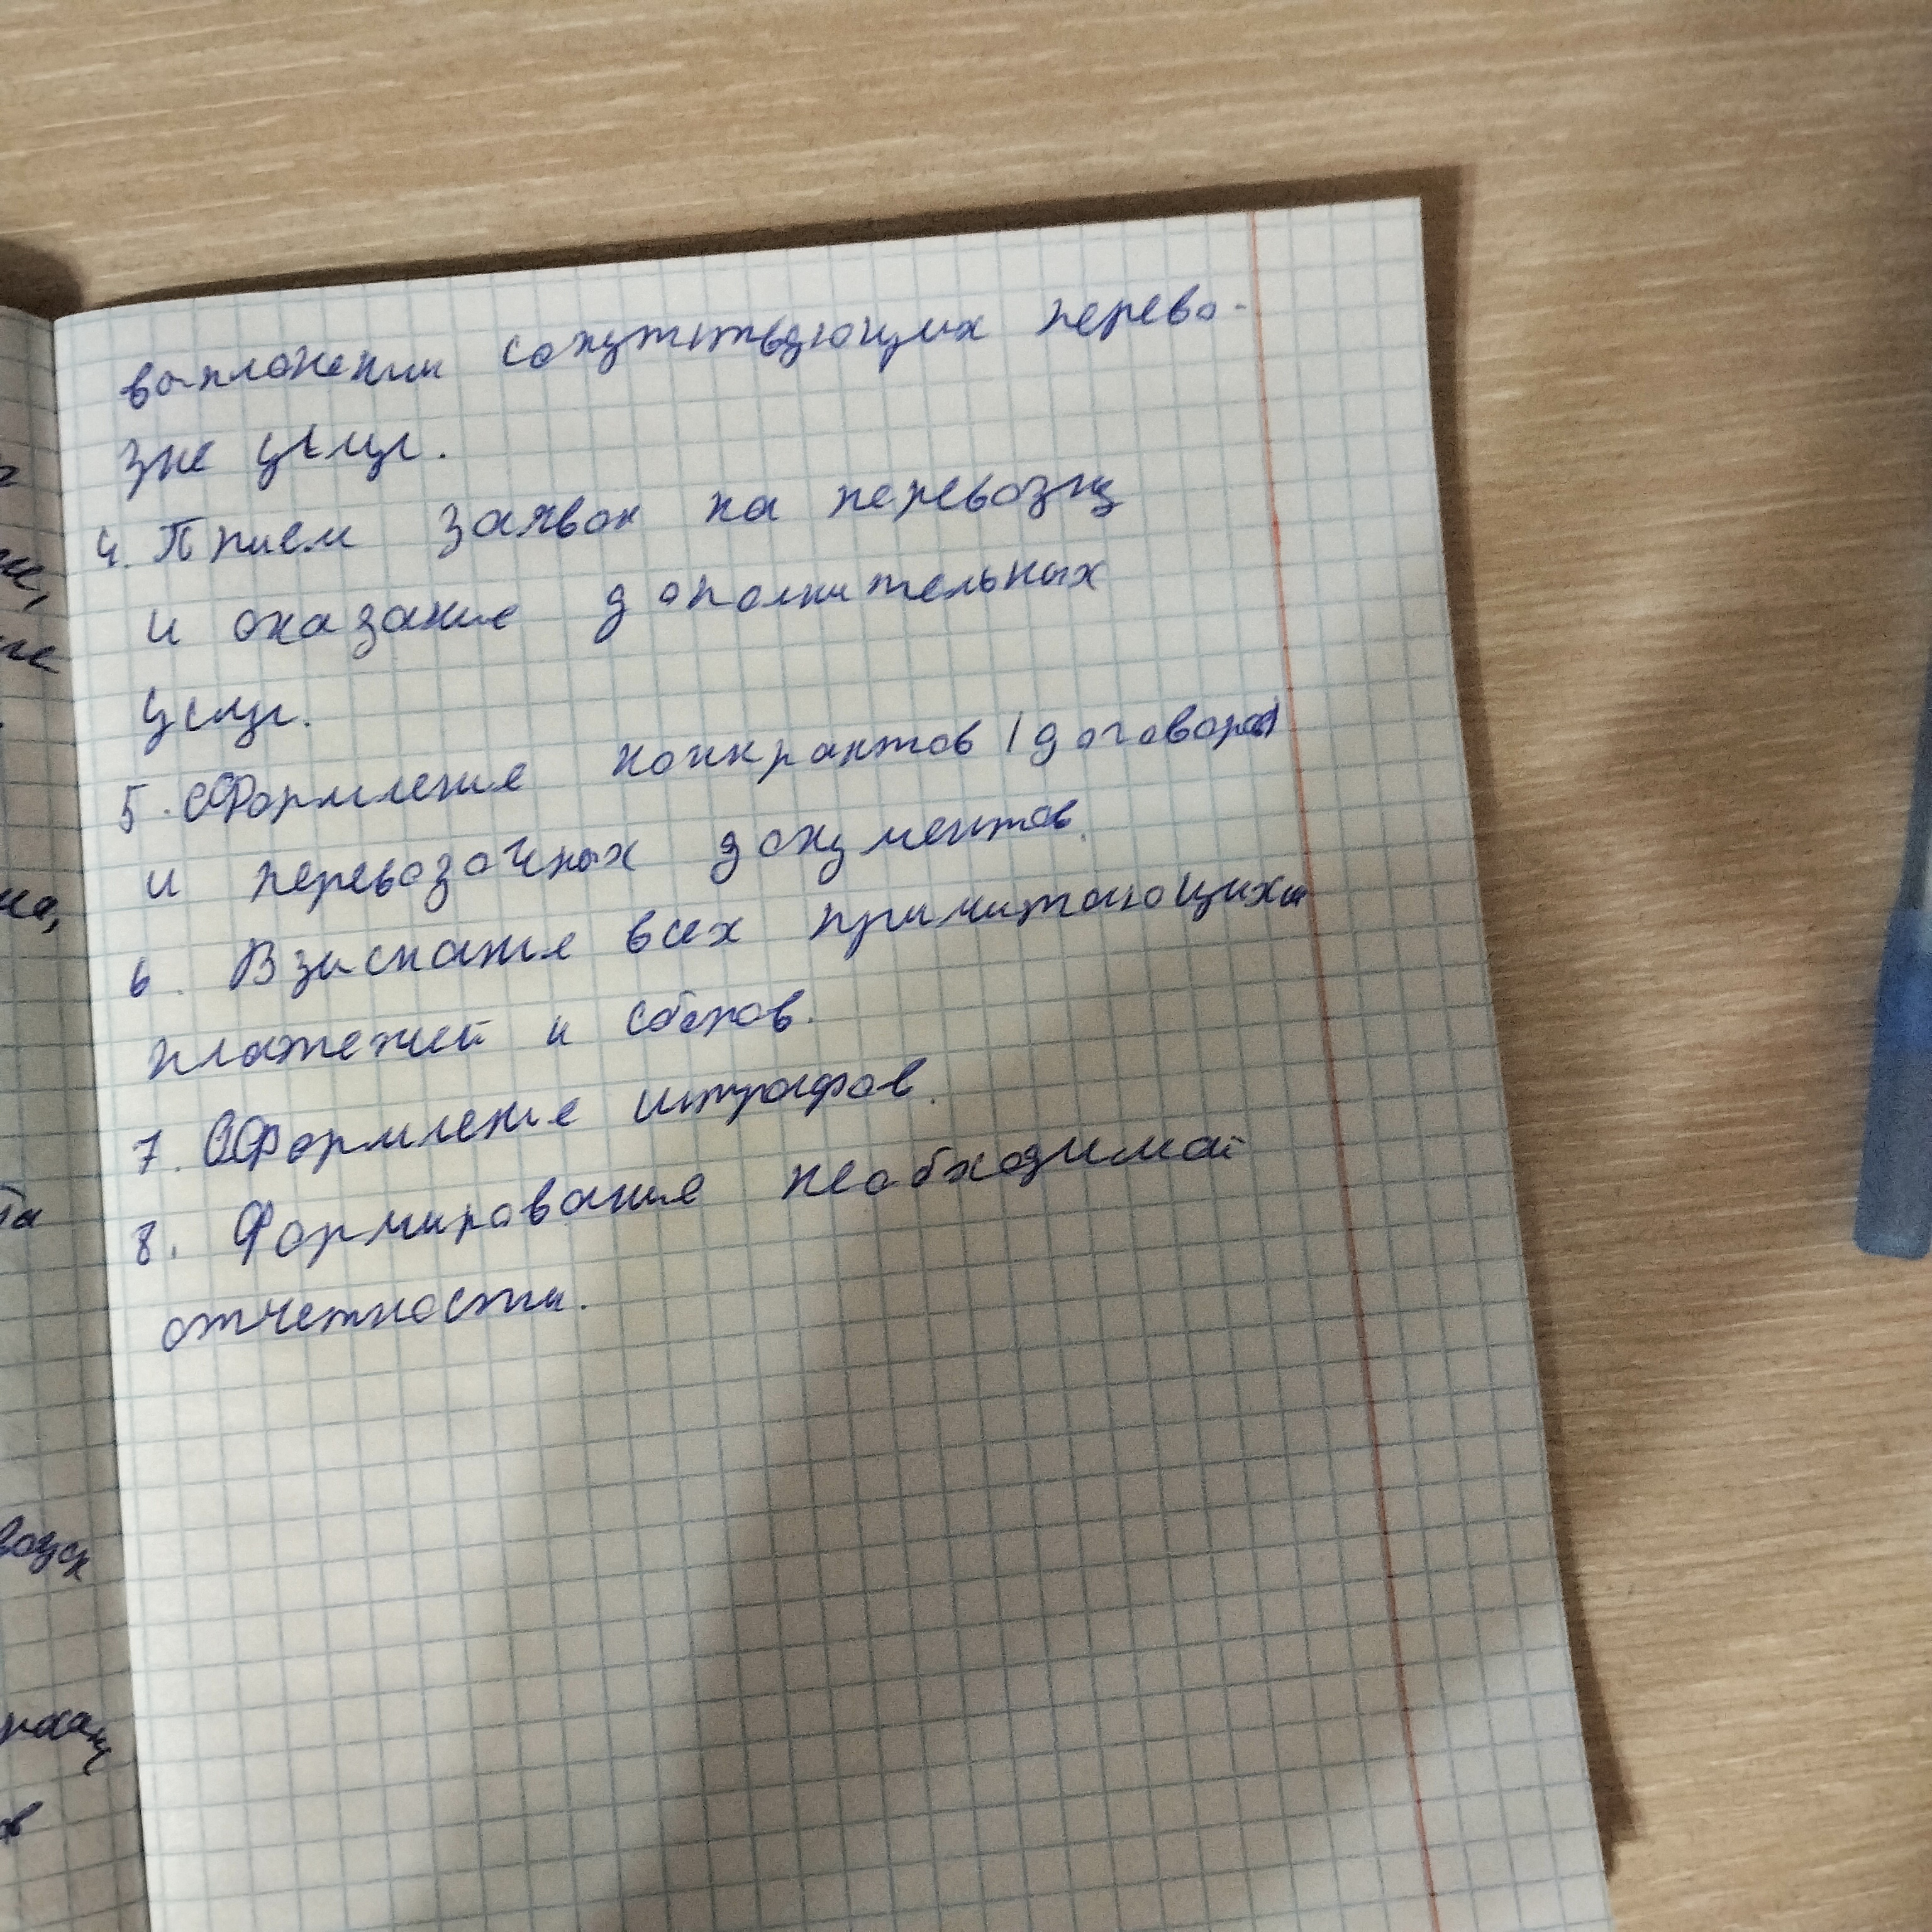 выпложении сопутствующих перево-
зке услуг.
4. Прием заявок на перевозку
и оказание дополнительных
услуг.
5. Оформление контрактов (договоров)
и перевозочных документов.
6. Взыскание всех причитающихся
платежей и сборов.
7. Оформление штрафов.
8. Формирование необходимой
отчетности.